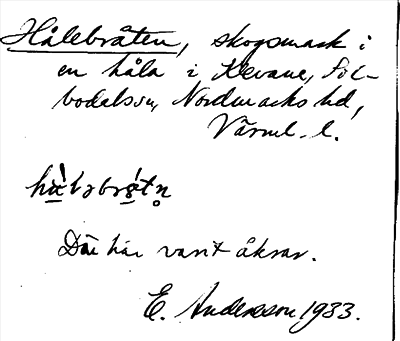 Hålebråten, skogsmark i
en håla i Klevane, Sil-
bodals sn, Nordmarks hd,
Värml. l.
Där har varit åkrar.
E. Andersson 1933.